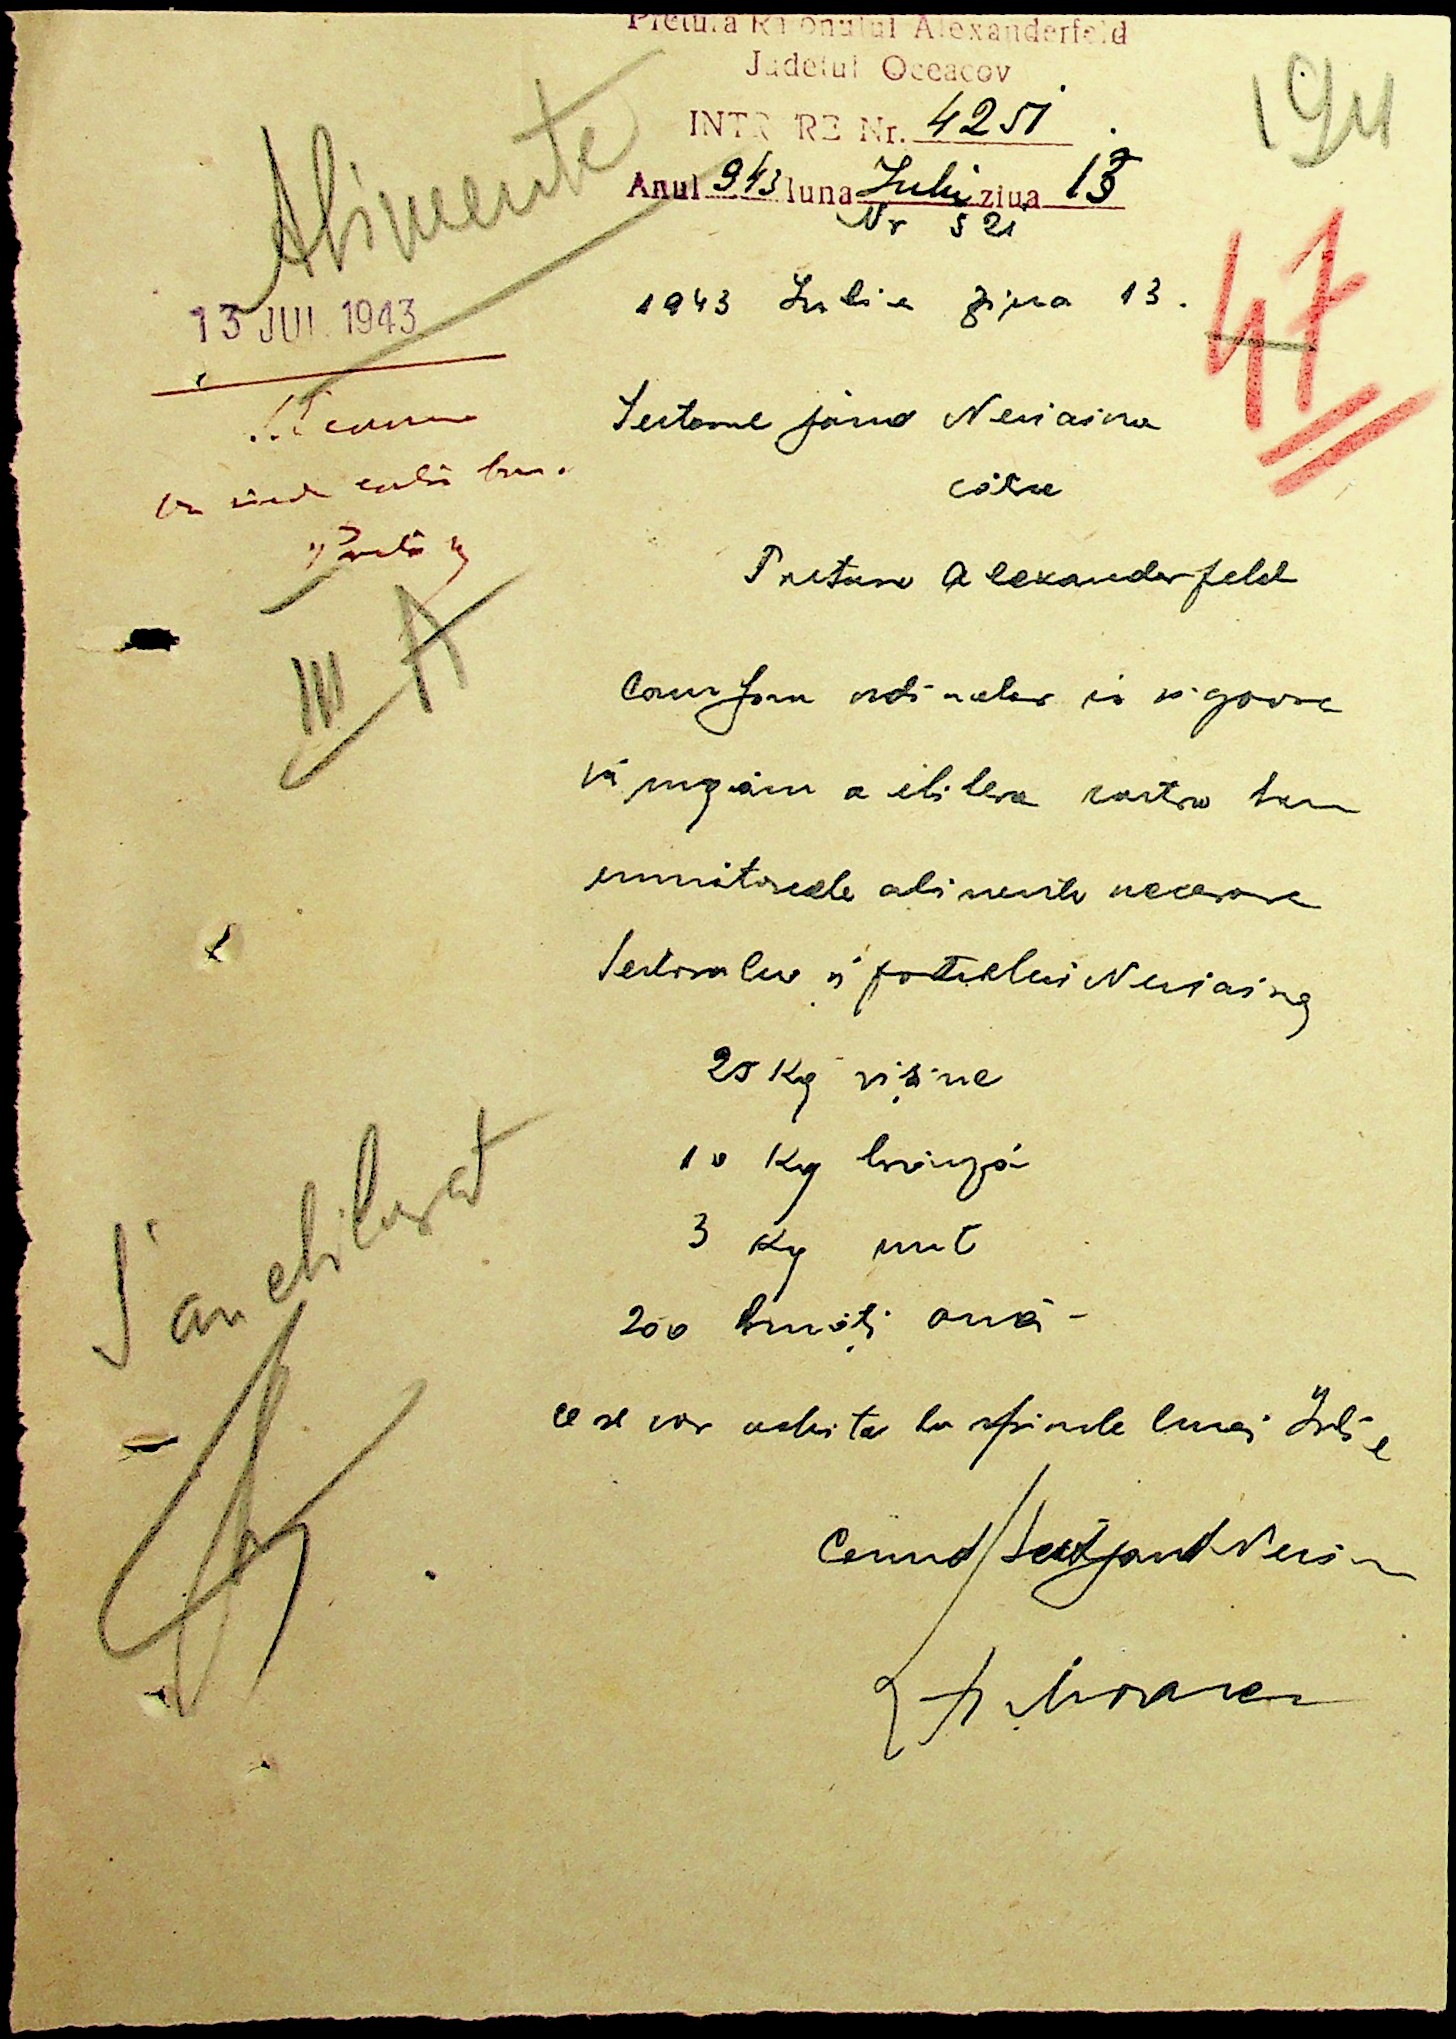 Pretura Raionului Alexanderfeld
Judetul Oceacov
INTRARE Nr. 4251
Anul 943 luna Iulie ziua 13
Nr 521
194
47
Alimente
13 JUL 1943
1943 Iulie ziua 13.
Sectorul jand Neuiaina
către
Pretura Alexanderfeld
III A
Conform ordinelor în vigoare
vă rugăm a elibera contra bon
următoarele alimente necesare
Sectorului și postului Neuiaina
25 Kg vișine
10 Kg brânză
3 Kg unt
200 bucăți ouă -
ce se vor achita la sfârșitele lunei Iulie
S'au eliberat
Comd Sect jand